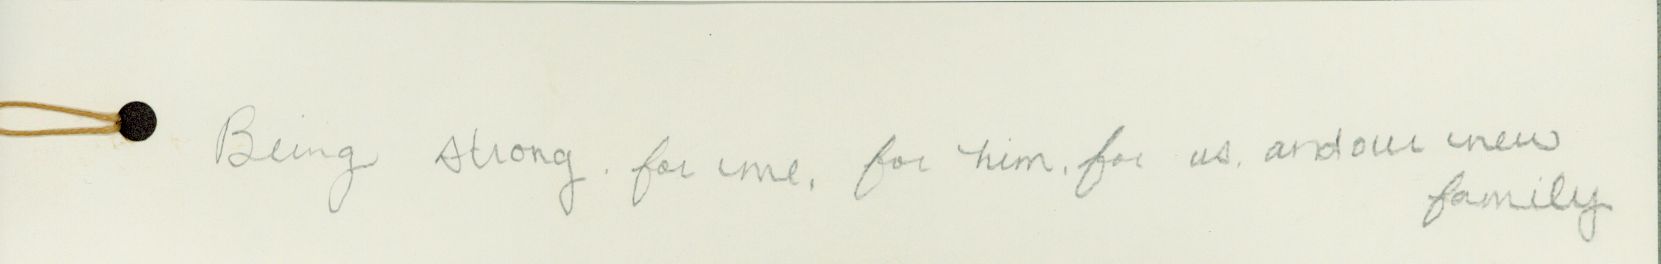 Being strong. for me, for him, for us. and our new
family